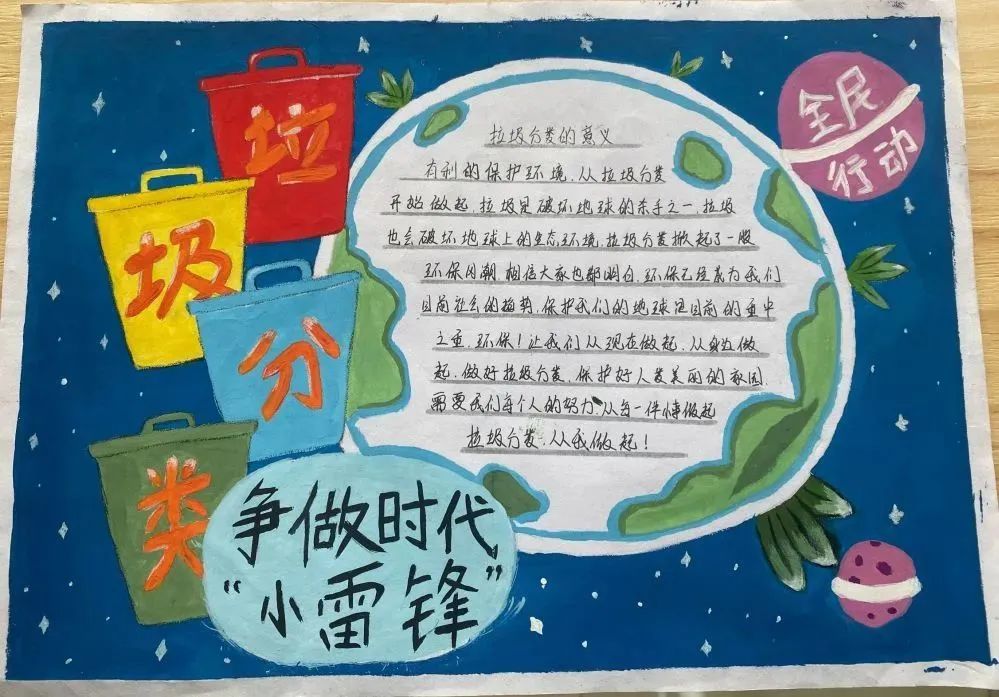 垃
圾
分
类
全民
行动
垃圾分类的意义
有利的保护环境，从垃圾分类
开始做起，垃圾是破坏地球的杀手之一，垃圾
也会破坏地球上的生态环境，垃圾分类掀起了一股
环保风潮，相信大家也都明白，环保已经成为我们
目前社会的趋势，保护我们的地球是目前的重中
之重，环保！让我们从现在做起，从身边做
起，做好垃圾分类，保护好人类美丽的家园，
需要我们每个人的努力，从每一件事做起
垃圾分类，从我做起！
争做时代
“小雷锋”